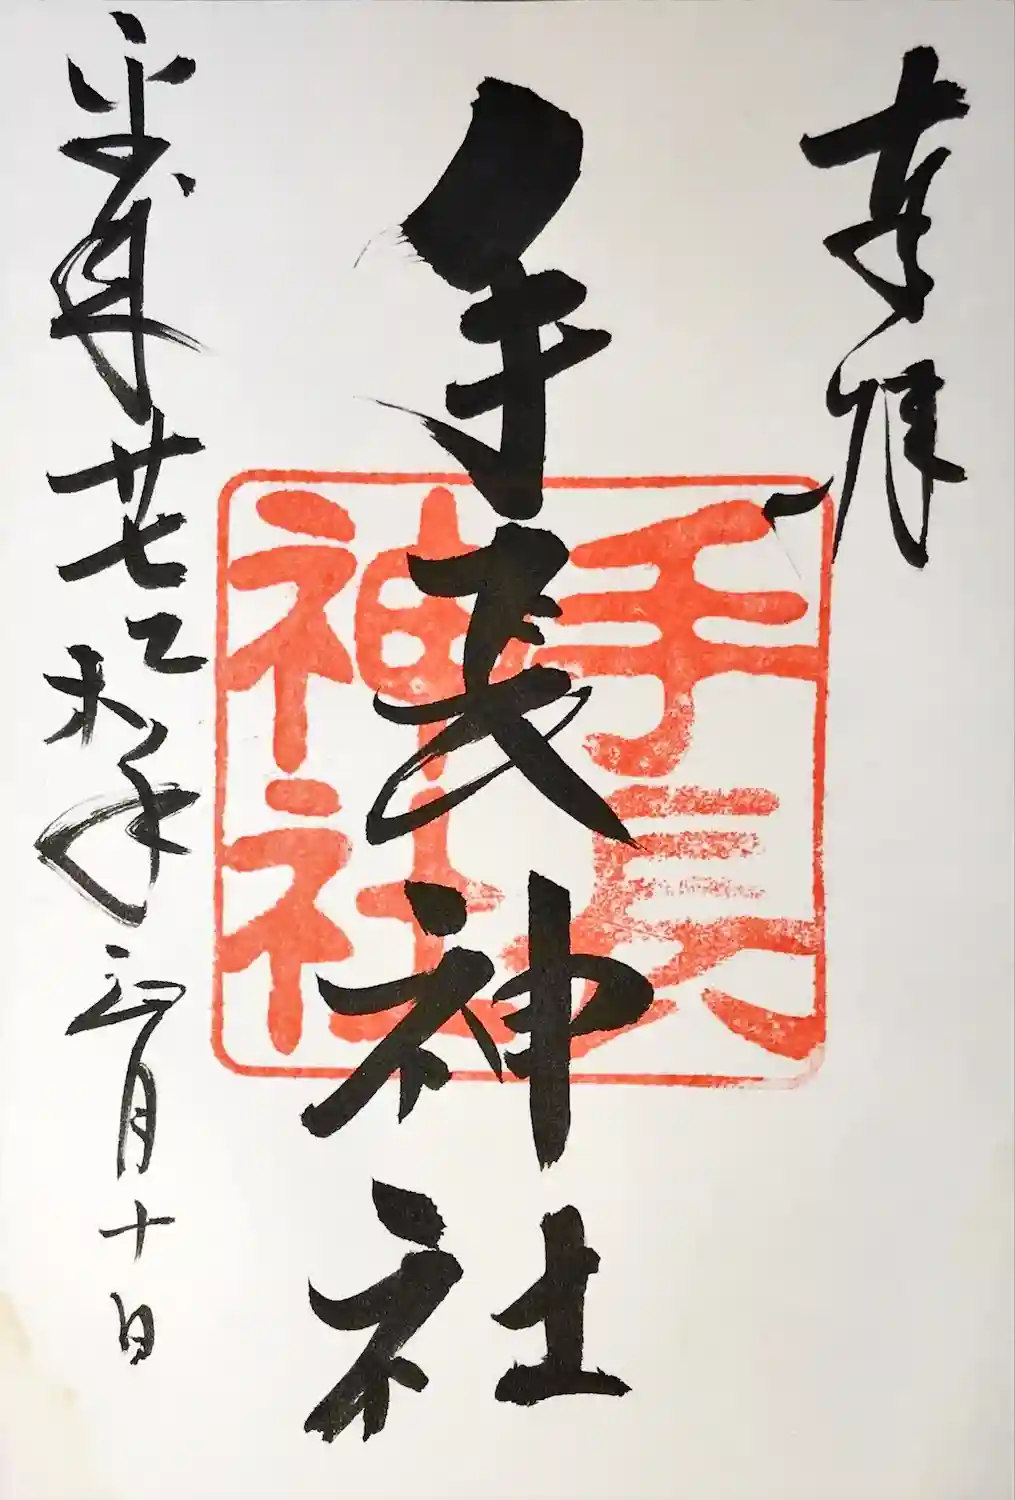 奉拝
手長神社
手長
神社
平成廿七乙未年三月十日